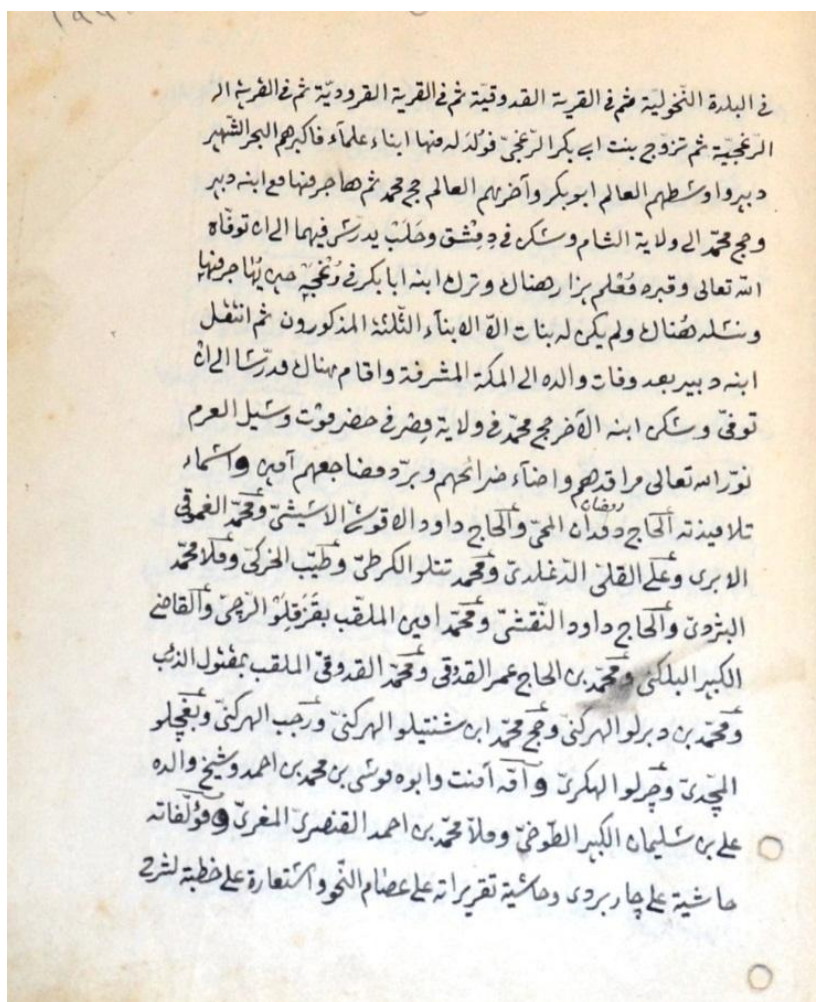 في البلدة النخولية ثم في القرية القدوقية ثم في القرية القرودية ثم في القرية الر
الرغجية ثم تزوج بنت ابي بكر الرغجي فولد له منها ابناء علماء فاكبرهم البحر الشهير
دبير واوسطهم العالم ابو بكر وآخرهم العالم حج محمد ثم هاجر منها مع ابنه دبير
وحج محمد الى ولاية الشام وسكن في دمشق وحلب يدرس فيهما الى ان توفاه
الله تعالى وقبره معلم يزار هناك وترك ابنه ابا بكر في رغجيه حين هاجر منها
ونسله هناك ولم يكن له بنات الا الابناء الثلثة المذكورون ثم انتقل
ابنه دبير بعد وفات والده الى المكة المشرفة واقام هناك مدرسا الى ان
توفى وسكن ابنه الآخر حج محمد في ولاية مصر في حضرموت وسيل العرم
نور الله تعالى مراقدهم واضاء ضرائحهم وبرد مضاجعهم آمين واسماء
رمضان
تلاميذته الحاج المحي والحاج داود الاقوشي الاشيشي ومحمد الغموقي
الابري وعلي القلي الدغلدي ومحمد تتلو الكرطي وطيب الخركي وملا محمد
البژدي والحاج داود النقشي ومحمد امين الملقب بقزقلو الرچي والقاضي
الكبير البلكني ومحمد بن الحاج عمر القدوقي ومحمد القدوقي الملقب بمقتول الذئب
ومحمد بن دبرلو الهركني وحج محمد ابن شنتيلو الهركني ورجب الهركني وبغچلو
المچدي وچرلو الهكري وآقه آمنت وابوه موسى بن محمد بن احمد وشيخ والده
علي بن سليمان الكبير الطوخي وملا محمد بن احمد القنصري المغربي ومؤلفاته
حاشية على چاربردي وحاشية تقريراته على عصام النحو واستعارة على خطبة لشرح